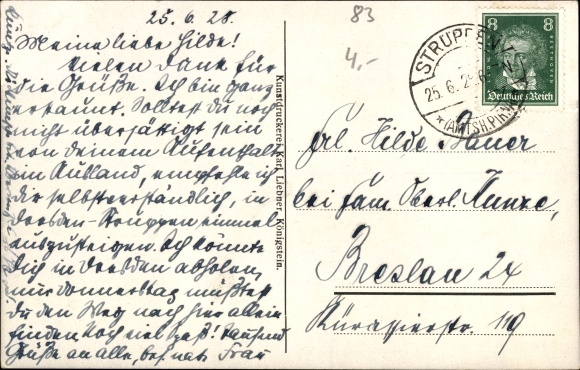 25.6.28.
Meine liebe Hilde!
Vielen Dank für
die Grüße. Ich bin ganz
erstaunt. Solltest du noch
nicht übersättigt sein
von deinem Aufenthalt
in Rußland, empfehle ich
dir selbstverständlich, in
Dresden-Struppen einmal
auszusteigen. Ich könnte
dich in Dresden abholen,
nur Donnerstag müßtest
du den Weg nach hier allein
finden. Noch viel Spaß! Tausend
Grüße an alle, bes. nats Frau
Kunstdruckerei Karl Liebner, Königstein.
83
4,-
STRUPPEN
25.6.2
(AMTSH. PIRNA)
8 8
Deutsches Reich
BEETHOVEN
Frl. Hilde Bauer
bei Fam. Oberl. Kunze,
Breslau 24
Kürassierstr. 119